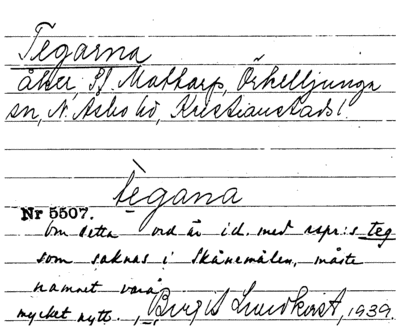 Tegarna
åker, Mattarp, Örkelljunga
sn, N. Åsbo hd, Kristianstads l.
tègana
Nr 5507.
Om detta ord är id. med rspr:s teg
som saknas i Skånemålen, måste
namnet vara
mycket nytt.
Birgit Lundkvist, 1939.